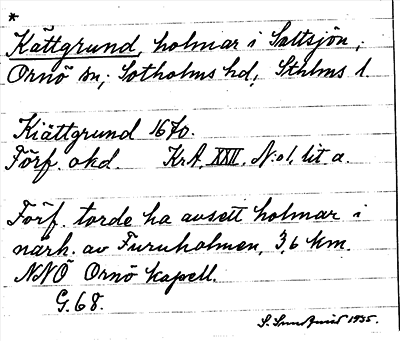 *
Kättgrund, holmar i Saltsjön;
Ornö sn; Sotholms hd; Sthlms l.
Kiättgrund 1670.
Förf. okd. KrA. XXII. No 1. lit a.
Förf. torde ha avsett holmar i
närh. av Furuholmen, 3,6 km.
NNÖ Ornö kapell.
G.68.
S. Sundqvist 1935.